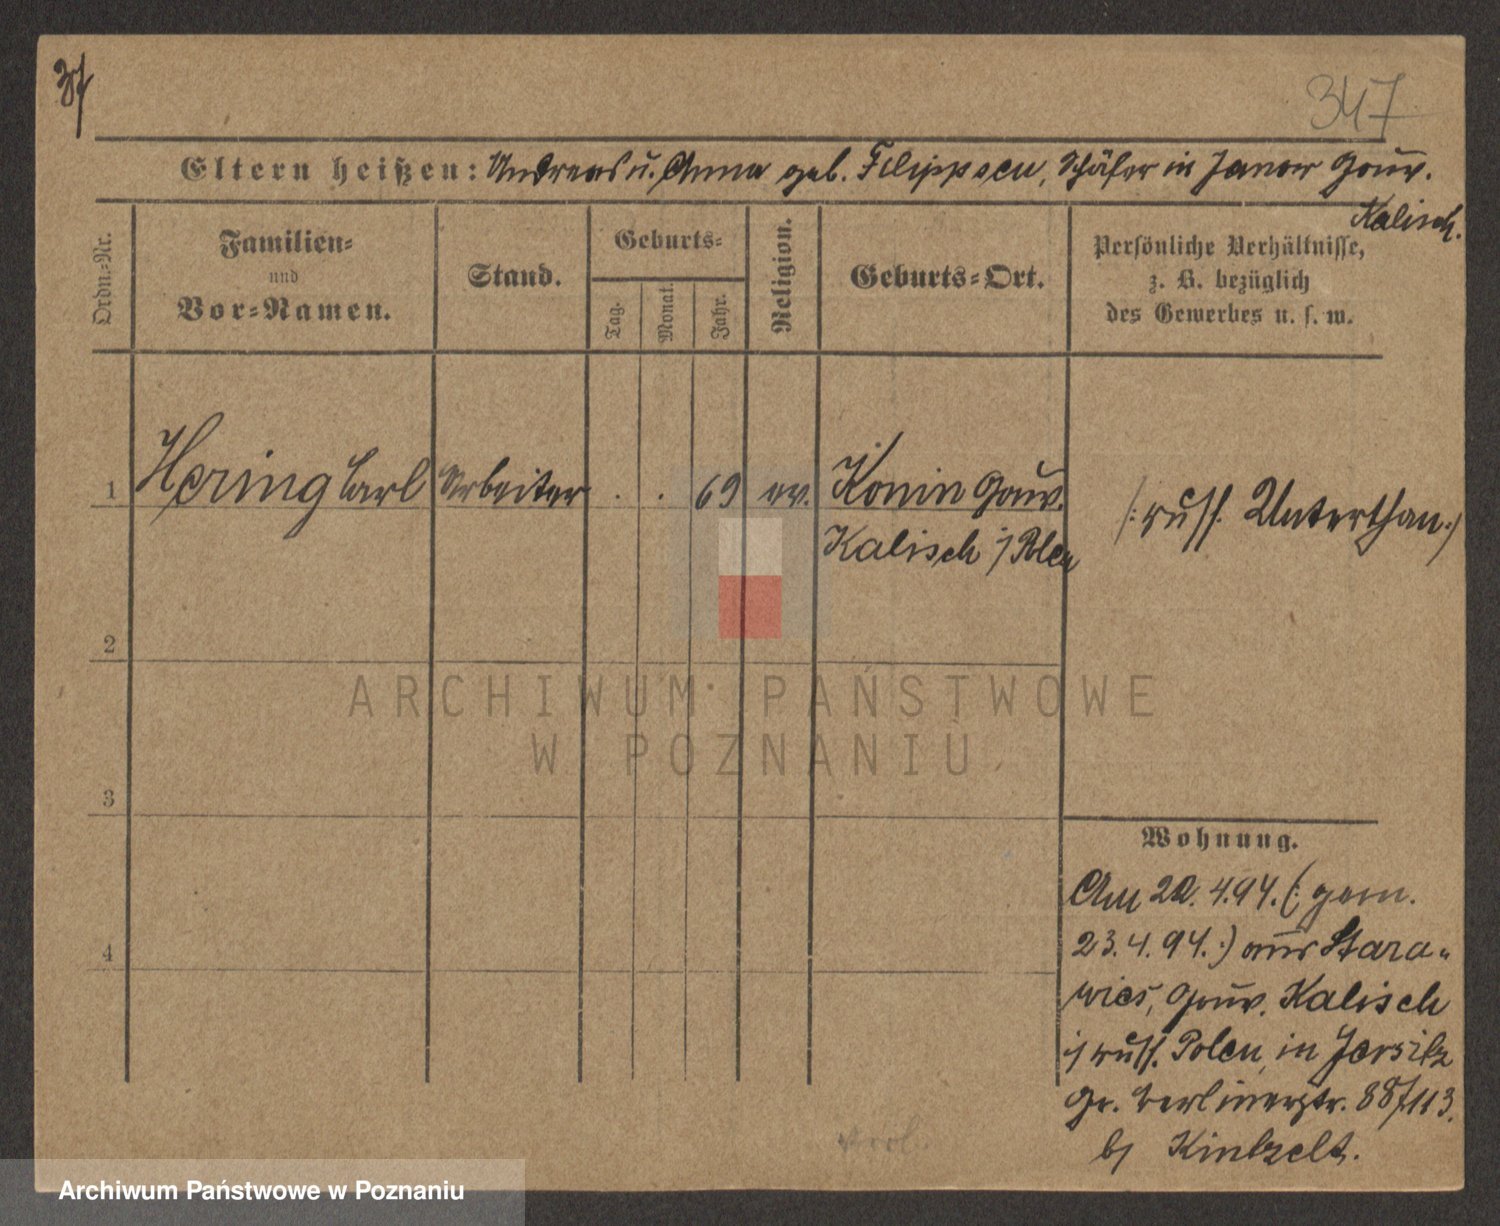 347
Eltern heißen: Andreas u. Anna geb. Filippsen, Schäfer in Janow Gouv.
Kalisch.
Ordn.-Nr.
Familien-
und
Vor-Namen.
Stand.
Geburts-
Tag.
Monat.
Jahr.
Religion.
Geburts-Ort.
Persönliche Verhältnisse,
z. B. bezüglich
des Gewerbes u. s. w.
1 Hering Carl Arbeiter . . 69 ev. Konin Gouv.
Kalisch i/Polen
(: russ. Unterthan :)
2
ARCHIWUM PAŃSTWOWE
W POZNANIU
3
Wohnung.
Am 22. 4. 94. (: gem.
23. 4. 94. :) aus Stara-
wies, Gouv. Kalisch
i/russ. Polen, in Jersitz
Gr. Berlinerstr. 88/113.
b/
4
Archiwum Państwowe w Poznaniu